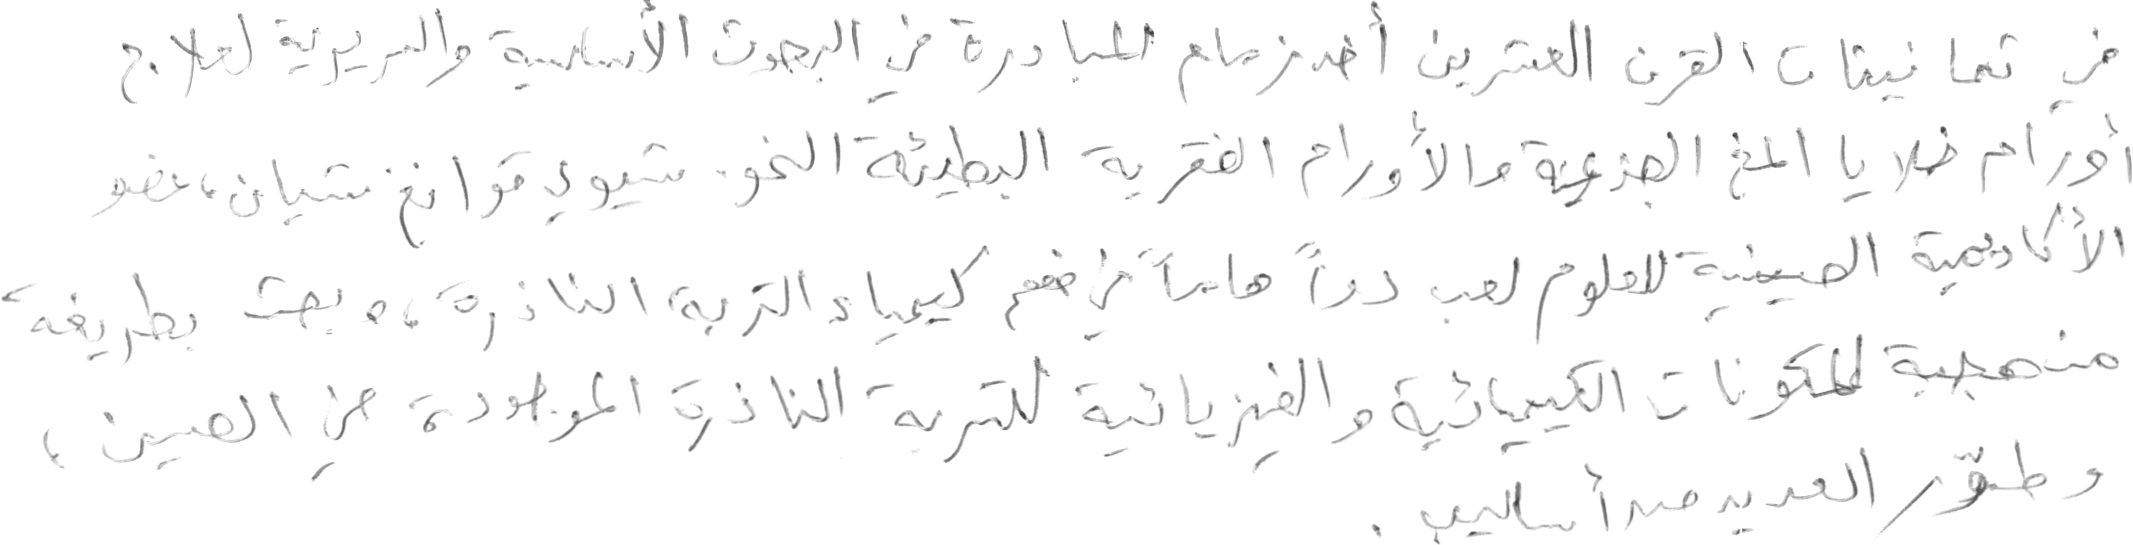 في ثمانينات القرن العشرين أخذ زمام المبادرة في البحوث الأساسية والسريرية لعلاج
أورام خلايا المخ الجذعية والأورام الفقرية البطيئة النمو. شيوي قوانغ شيان، عضو
الأكاديمية الصينية للعلوم لعب دوراً هاماً في فهم كيمياء التربة النادرة، و بحث بطريقة
منهجية للمكونات الكيميائية والفيزيائية للتربة النادرة الموجودة في الصين،
وطوّر العديد من أساليب.